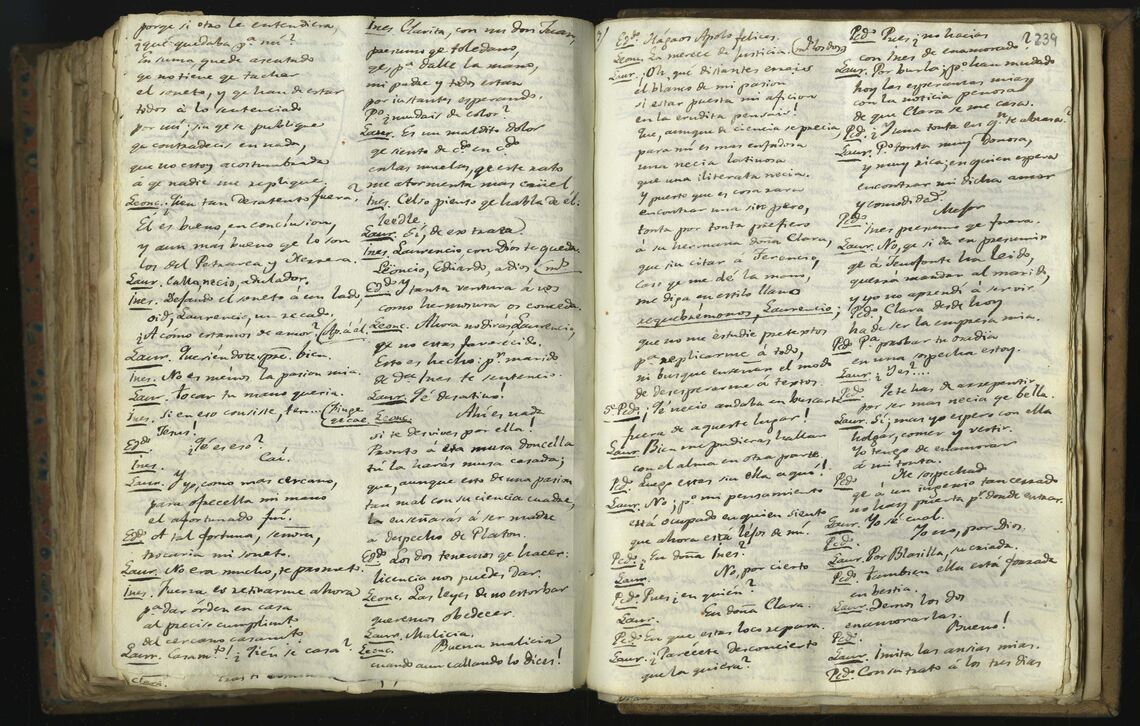 porqe si otro le entendiera,
¿qué quedaba pª mí?
En suma quede asentado
qe no tiene qe tachar
el soneto, y qe han de estar
todos á lo sentenciado
por mí, sin qe se publique
qe contradecis en nada,
que no estoy acostumbrada
a qe nadie me replique.
Leonc. Quien tan desatento fuera?
El es bueno, en conclusion,
y aun mas bueno qe lo son
los del Petrarca y Herrera.
Laur. Calla, necio, adulador.
Ines. Dejando el soneto a un lado,
oid, Laurencio, un recado.
¿A cómo estamos de amor? (Ap. á él.
Laur. Queriendoos, bien.
Ines. No es ménos la pasion mia.
Laur. Tocar tu mano queria.
Ines. Si en eso consiste, ten... (Finge qe cae.
Jesus!
Edo. ¿Qé es eso?
Ines. Caí.
Laur. Y yo, como mas cercano,
para ofrecella mi mano
el afortunado fuí.
Edo. A tal fortuna, señora,
trocaria mi soneto.
Laur. No era mucho, te prometo.
Ines. Fuerza es retirarme ahora
pª dar órden en casa
al preciso cumplimto
del cercano casamto
Laur. Casamto! ¿Qién se casa?
Ines. Clarita, con un don Juan,
presumo qe toledano,
qe, pª dalle la mano,
mi padre y todos estan
por instantes esperando.
Po ¿mudais de color?
Laur. Es un maldito dolor
qe siento de cdo en cdo
en las muelas, qe este rato
me atormenta mas cruel.
Ines. Celio pienso qe habla de él:
leedle.
Laur. Sí, de eso trata.
Ines. Laurencio, con Dios te queda.
Leoncio, Eduardo, adios.
Edo. Y tanta ventura á vos
como hermosura os conceda.
Leonc. Ahora no dirás, Laurencio,
qe no estas favorecido.
Esto es hecho: pr marido
de dª Ines te sentencio.
Laur. Qé desatino!
Leonc. Ahi es nada
si te desvives por ella!
Pronto á esa musa doncella
tú la harás musa casada;
que, aunque esto de una pasion
tan mal con su ciencia cuadre,
la enseñarás á ser madre
a despecho de Platon.
Edo. Los dos tenemos qe hacer:
licencia nos puedes dar.
Leonc. Las leyes de no estorbar
queremos obedecer.
Laur. Malicia.
Leonc. Buena malicia
cuando aun callando lo dices!
239
Edo. Hagaos Apolo felices.
Leonc. La merece de justicia.
Laur. ¡Oh, qué distantes
el blanco de mi pasion
si estar puesta mi aficion
en la erudita pensais!
Que, aunque de ciencia se precia,
para mí es mas enfadosa
una necia latinosa
que una iliterata necia.
Y puesto que es cosa rara
encontrar una sin pero,
tonta por tonta prefiero
á su hermana doña Clara,
que sin citar á Terencio,
casi qe me dé la mano,
me diga en estilo llano
requebrémonos, Laurencio;
que no me estudie pretextos
pª replicarme á todo,
ni busque en el modo
de desesperarme á textos.
Sn Pedo. ¡Qé necio andaba en buscarte
fuera de aqueste lugar!
Laur. Bien me pudieras hallar
con el alma en otra parte.
Pdo. Luego estas sin ella aquí!
Laur. No; po mi pensamiento
está ocupado en quien siento
que ahora está lejos de mí.
Pedo. En doña Ines?
Laur. No, por cierto
Pedo. Pues ¿en quién?
Laur. En doña Clara.
Pedo. En que estas loco repara.
Laur. ¿Parecete desconcierto
que la quiera?
Pedo. Pues ¿no hacias
con Ines de enamorado?
Laur. Por burla; po han mudado
hoy las esperanzas mias
con la noticia penosa
de que Clara se me casa.
Pedo. ¿Y una tonta en qn te abrasa?
Laur. Po tonta muy donosa,
y muy rica; en quien espera
encontrar mi dicha amor
y comodidad.
Pedo. Mejor
Ines presumo qe fuera.
Laur. No, qe si da en presumir
qe á Jenofonte ha leido,
querrá mandar al marido,
y yo no aprendí á servir.
Clara desde hoy
ha de ser la empresa mia.
Pedo. Pª probar tu osadia
en una sospecha estoy.
Laur. ¿Y es?...
Pedo. Qe te has de arrepentir
por ser mas necia qe bella.
Laur. Sí; mas yo espero con ella
holgar, comer y vestir.
Yo tengo de enamorar
á mi tonta.
Pedo. He sospechado
qe a un ingenio tan cerrado
no hay puerta pr donde entrar.
Laur. Yo sé cual.
Pedo. Yo no, por Dios.
Laur. Por Blasilla, su criada.
Pedo. Tambien ella está forrada
en bestia.
Laur. Demos los dos
enamorarlas.
Pedo. Bueno!
Laur. Imita las ansias mias.
Pedo. Con su trato á los tres dias